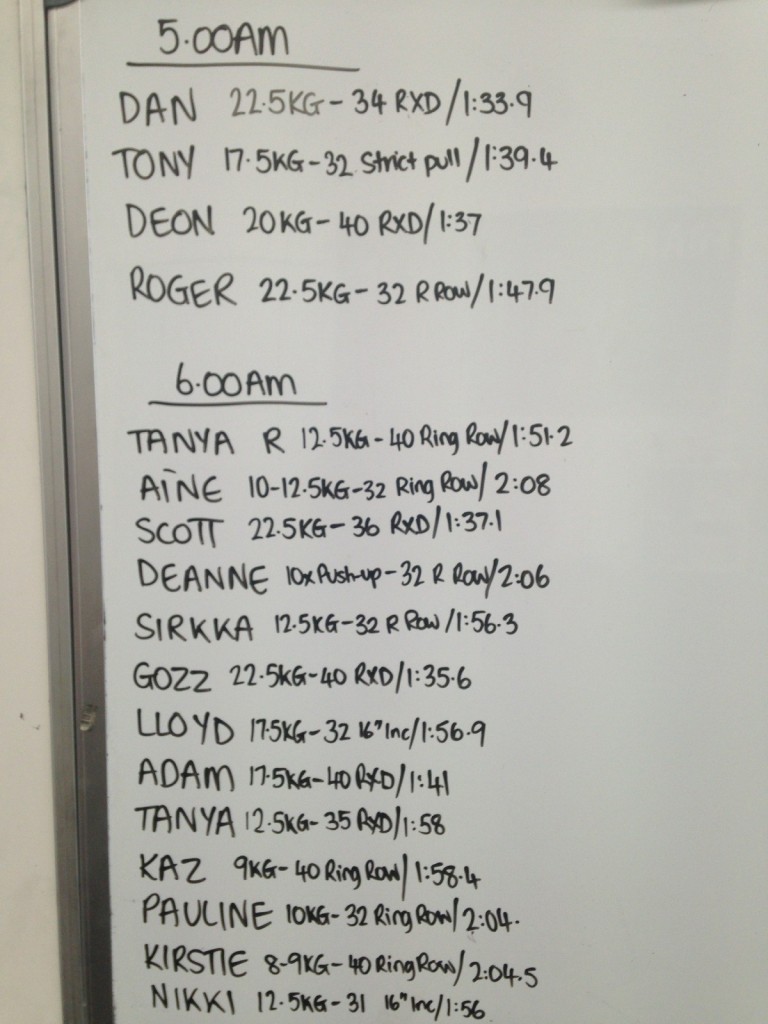 5.00AM
DAN 22.5KG - 34 RXD/1:33.9
TONY 17.5KG-32 Strict pull/1:39.4
DEON 20KG- 40 RXD/1:37
ROGER 22.5KG- 32 R ROW/1:47.9
6.00AM
TANYA R 12.5KG-40 Ring Row/1:51.2
AÏNE 10-12.5KG-32 Ring Row/2:08
SCOTT 22.5KG- 36 RXD/1:37.1
DEANNE 10x Push-up-32 R Row/2:06
SIRKKA 12.5KG-32 R Row/1:56.3
GOZZ 22.5KG-40 RXD/1:35.6
LLOYD 17.5KG-32 16" Inc/1:56.9
ADAM 17.5KG-40 RXD/1:41
TANYA 12.5KG- 35 RXD/1:58
KAZ 9KG- 40 Ring Row/1:58.4
PAULINE 10KG-32 Ring Row/2:04.
KIRSTIE 8-9KG-40 Ring Row/2:04.5
NIKKI 12.5KG-31 16" Inc/1:56